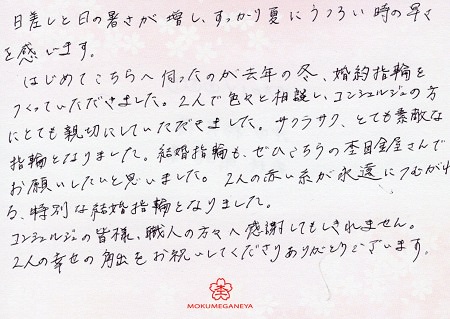 日差しと日の暑さが増し、すっかり夏にうつろい時の早さ
を感います。
はじめてこちらへ伺ったのが去年の冬、婚約指輪を
つくっていただきました。2人で色々と相談し、コンシェルジュの方
にとても親切にしていただきました。サクラサク、とても素敵な
指輪となりました。結婚指輪も、ぜひこちらの杢目金屋さんで
お願いしたいと思いました。2人の赤い糸が永遠につむがれ
る、特別な結婚指輪となりました。
コンシェルジュの皆様、職人の方々へ感謝してもしきれません。
2人の幸せの角出をお祝いしてくださりありがとうございます。
MOKUMEGANEYA